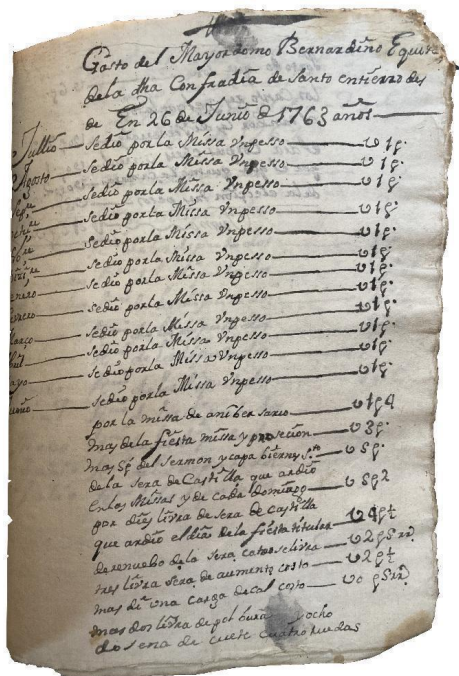 Gasto del Mayordomo Bernardino
dela dha Confradia de Santo entierro des
de En 26 de Junio d 1763 años
Jullio sedio por la Missa Vnpesso U1p.
Agosto sedio porla Missa Vnpesso U1p.
sedio porla Missa Vnpesso U1p.
sedio porla Missa Vnpesso U1p.
sedio porla Missa Vnpesso U1p.
sedio porla Missa Vnpesso U1p.
enero sedio porla Missa Vnpesso U1p.
sedio porla Missa Vnpesso U1p.
sedio porla Missa Vnpesso U1p.
sedio porla Missa Vnpesso U1p.
sedio porla Missa Vnpesso U1p.
sedio porla Missa Vnpesso U1p.
por la missa de aniber sario U1p4
mas de la fiesta missa y prosecion U3p.
mas 5p del sermon y capa bierny sto U5p.
de la sera de Castilla que ardio
en las Missas y de cada domingo U5p2
por dies livra de sera de castilla
que ardio el dia de la fiesta titular
de renuebo de la sera catorse livra
tres livra sera de aumento costo
mas de una carga de cal costo
mas dos livra de polbura y ocho
dosena de cuete cuatro ruedas